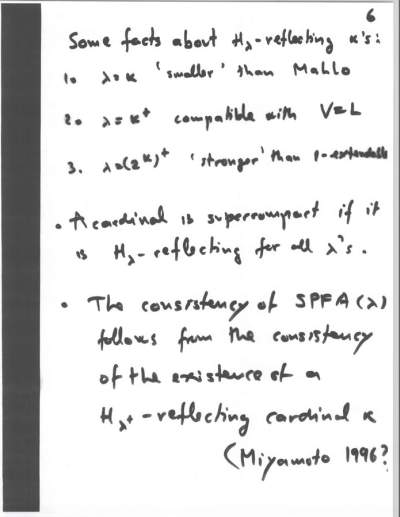 6
Some facts about H_λ-reflecting κ's:
1. λ=κ 'smaller' than Mahlo
2. λ=κ⁺ compatible with V=L
3. λ=(2^κ)⁺ 'stronger' than 1-extendable
• A cardinal is supercompact if it
is H_λ-reflecting for all λ's.
• The consistency of SPFA(λ)
follows from the consistency
of the existence of a
H_λ⁺-reflecting cardinal κ
(Miyamoto 1996?